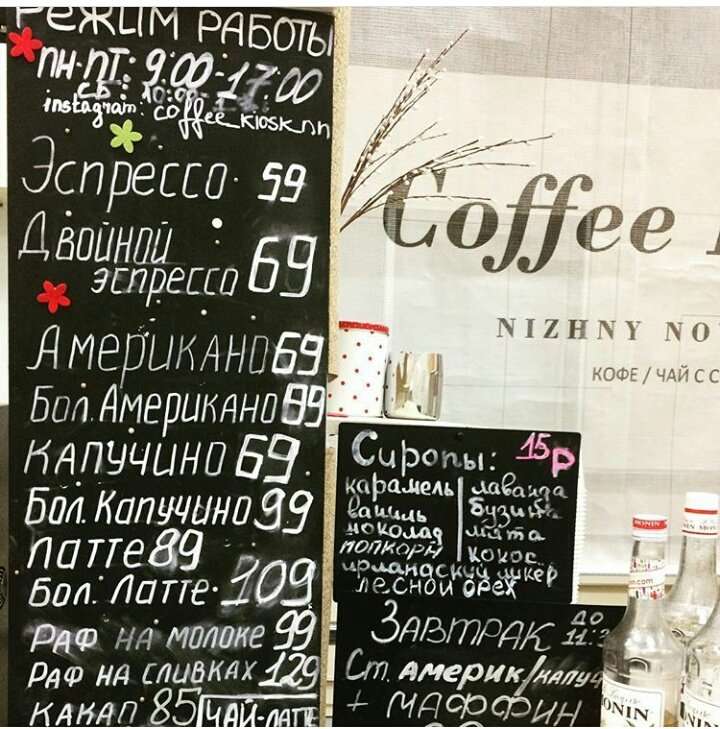 РЕЖИМ РАБОТЫ
ПН-ПТ: 9.00-17.00
СБ: 10:00-
instagram: coffee_kiosk_nn
Эспрессо. 59
Двойной
эспрессо 69
Американо 69
Бол. Американо 99
Капучино 69.
Бол. Капучыно 99
Латте 89
Бол. Латте. 109
Раф на молоке 99
Раф на сливках 129
Какао 85 ЧАЙ-ЛАТТЕ
Coffee
NIZHNY NO
КОФЕ / ЧАЙ С С
Сиропы: 15р
карамель лаванда
ваниль бузина
шоколад мята
попкорн кокос...
ирландский ликер
лесной орех
Завтрак до 11:3
Ст. америк/капуч
+ маффин
MONIN
MONIN
ONIN
NIN